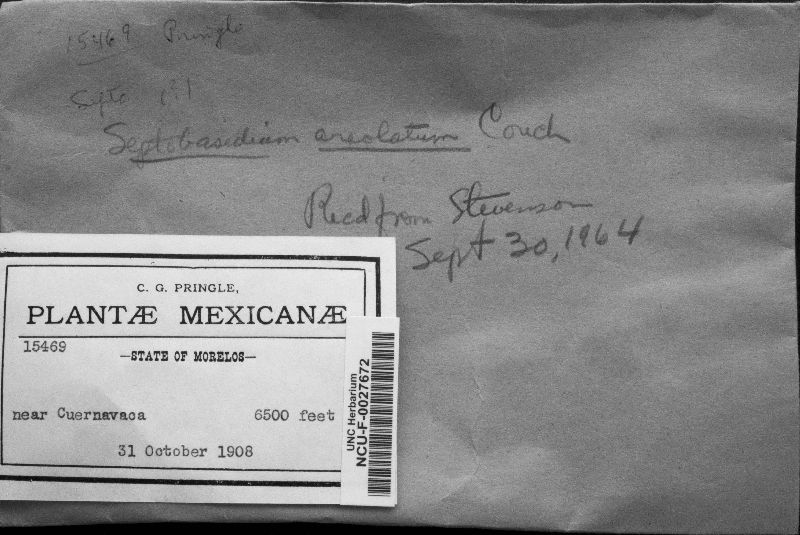 15469 Pringle
Septo
Septobasidium areolatum Couch
Recd from Stevenson
Sept 30, 1964
C. G. PRINGLE,
PLANTÆ MEXICANÆ
15469
—STATE OF MORELOS—
near Cuernavaca 6500 feet
31 October 1908
UNC Herbarium
NCU-F-0027672